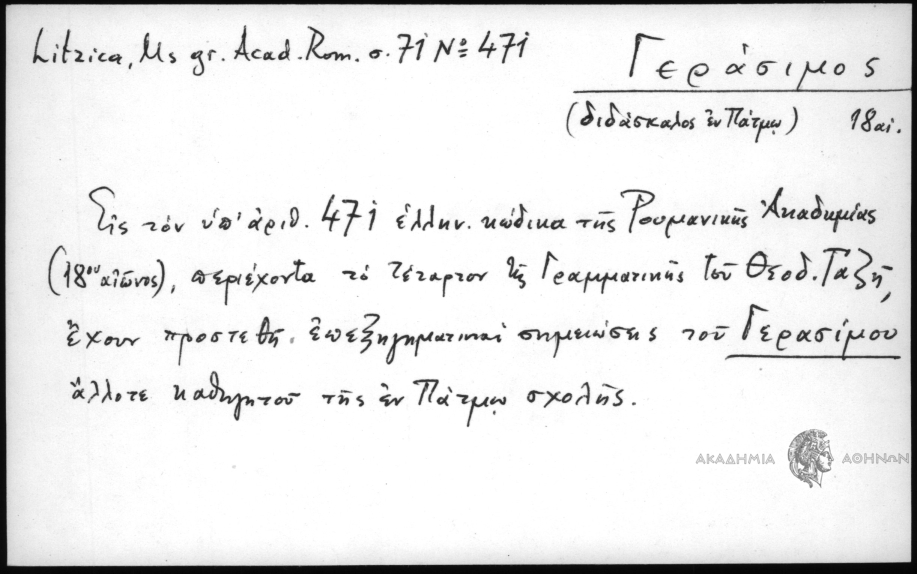 Litzica, Ms gr. Acad. Rom. σ. 71 Nº 471
Γεράσιμος
(διδάσκαλος ἐν Πάτμῳ) 18 αἰ.
Εἰς τὸν ὑπ' ἀριθ. 471 ἑλλην. κώδικα τῆς Ρουμανικῆς Ἀκαδημίας
(18ου αἰῶνος), περιέχοντα τὸ τέταρτον τῆς Γραμματικῆς τοῦ Θεοδ. Γαζῆ,
ἔχουν προστεθῆ ἐπεξηγηματικαὶ σημειώσεις τοῦ Γερασίμου
ἄλλοτε καθηγητοῦ τῆς ἐν Πάτμῳ σχολῆς.
ΑΚΑΔΗΜΙΑ ΑΘΗΝΩΝ